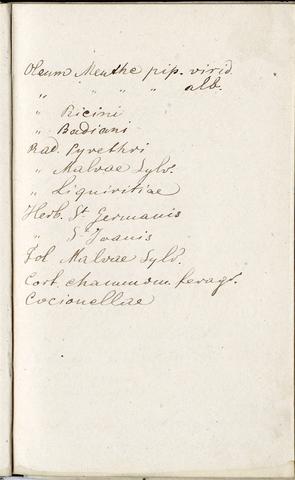 Oleum Menthe pip. virid.
" " " " alb.
" Ricini
" Badiani
Rad. Pyrethri
" Malvae Sylv.
" Liquiritiae
Herb. St Germanis
" St Joanis
Fol Malvae Sylv.
Cort. chammom. feragr.
Cocionellae